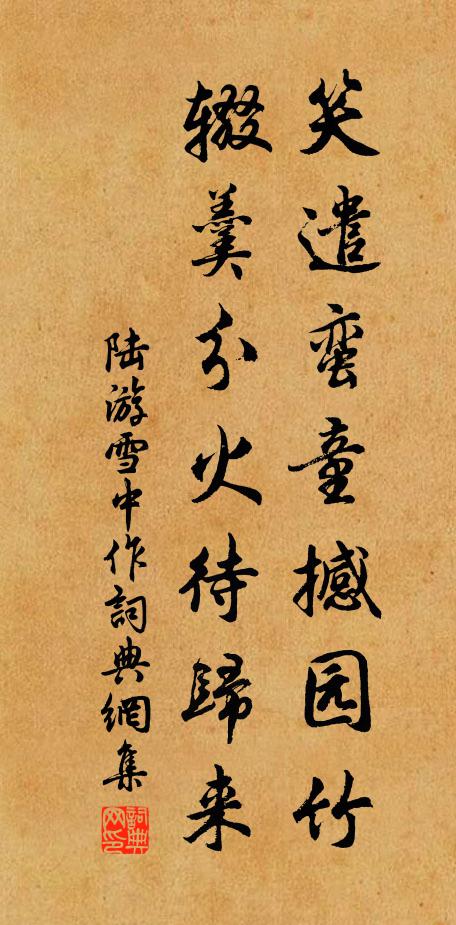 笑遣蛮童撼园竹
辍羹分火待歸来
陆游雪中作詞典網集
詞典網印